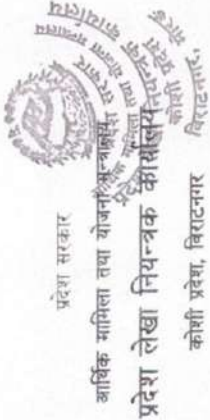 प्रदेश सरकार
आर्थिक मामिला तथा योजना मन्त्रालय
प्रदेश लेखा नियन्त्रक कार्यालय
कोशी प्रदेश, विराटनगर